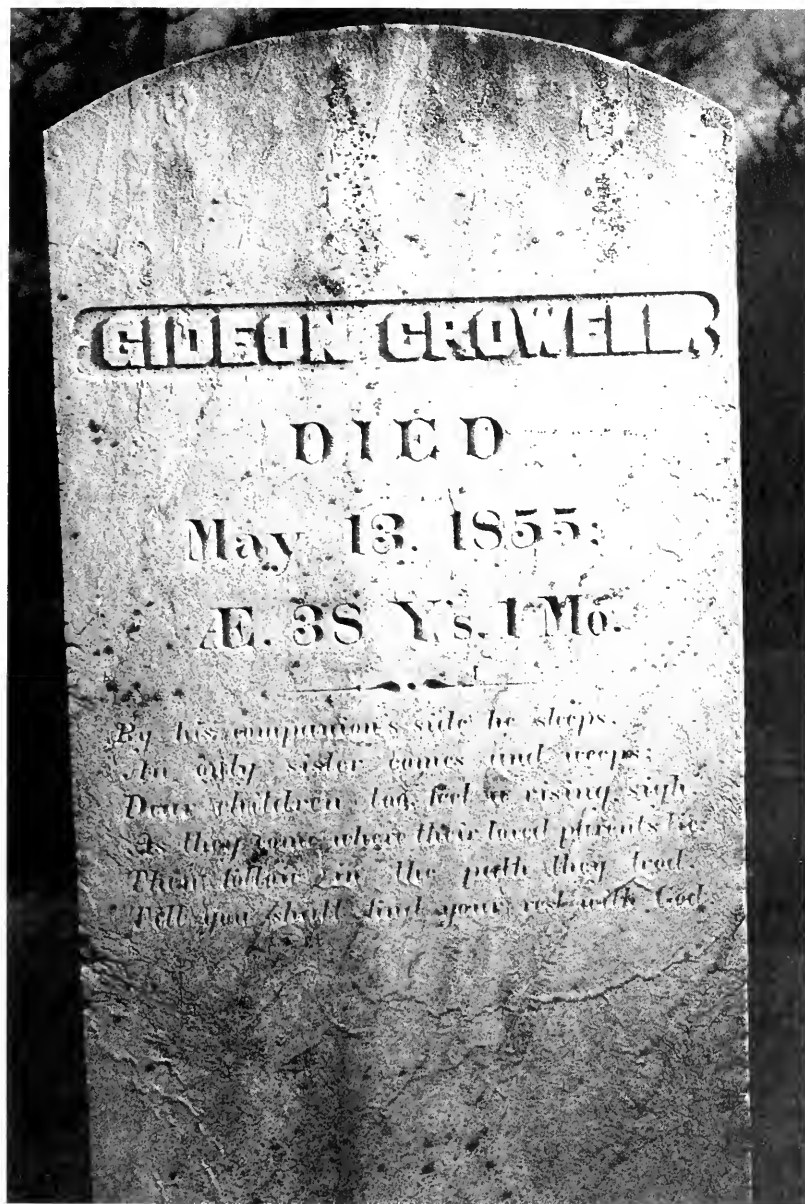 GIDEON CROWELL,
DIED
May 13. 1855:
Æ. 38 Y's. 1 Mo.
By his companions side he sleeps.
An only sister comes and weeps:
Dear children too, feel a rising sigh.
As they come where their loved parents lie.
Then follow in the path they trod.
Till you shall find your rest with God